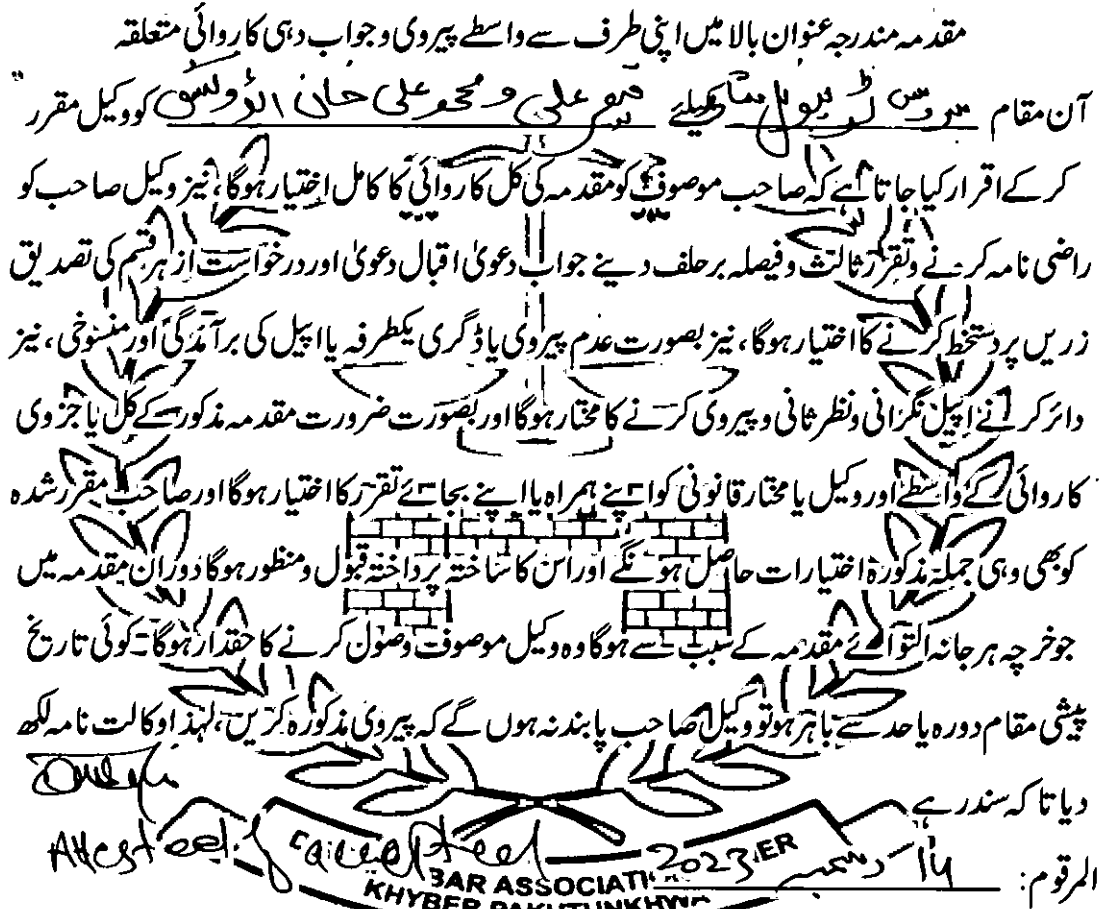 مقدمہ مندرجہ عنوان بالا میں اپنی طرف سے واسطے پیروی و جواب دہی کاروائی متعلقہ
آن مقام سروس ٹریبونل کیلئے علی و محمد علی خان ایڈوکیٹس کو وکیل مقرر
کر کے اقرار کیا جاتا ہے کہ صاحب موصوف کو مقدمہ کی کل کاروائی کا کامل اختیار ہوگا، نیز وکیل صاحب کو
راضی نامہ کرنے و تقرر ثالث و فیصلہ بر حلف دینے جواب دعویٰ اقبال دعویٰ اور درخواست از ہر قسم کی تصدیق
زریں پر دستخط کرنے کا اختیار ہوگا، نیز بصورت عدم پیروی یا ڈگری یکطرفہ یا اپیل کی برآمدگی اور منسوخی، نیز
دائر کرنے اپیل نگرانی و نظر ثانی و پیروی کرنے کا مختار ہوگا اور بصورت ضرورت مقدمہ مذکور کے کل یا جزوی
کاروائی کے واسطے اور وکیل یا مختار قانونی کو اپنے ہمراہ یا اپنے بجائے تقرر کا اختیار ہوگا اور صاحب مقرر شدہ
کو بھی وہی جملہ مذکورہ اختیارات حاصل ہونگے اور اس کا ساختہ پرداختہ قبول و منظور ہوگا دوران مقدمہ میں
جو خرچہ ہرجانہ التوائے مقدمہ کے سبب سے ہوگا وہ وکیل موصوف وصول کرنے کا حقدار ہوگا۔ کوئی تاریخ
پیشی مقام دورہ یا حد سے باہر ہو تو وکیل صاحب پابند نہ ہوں گے کہ پیروی مذکورہ کریں، لہذا وکالت نامہ لکھ
دیا تا کہ سند رہے
Attested & accepted
المرقوم: 14 دسمبر 2023
BAR ASSOCIATI
KHYBER PAKHTUNKHWA